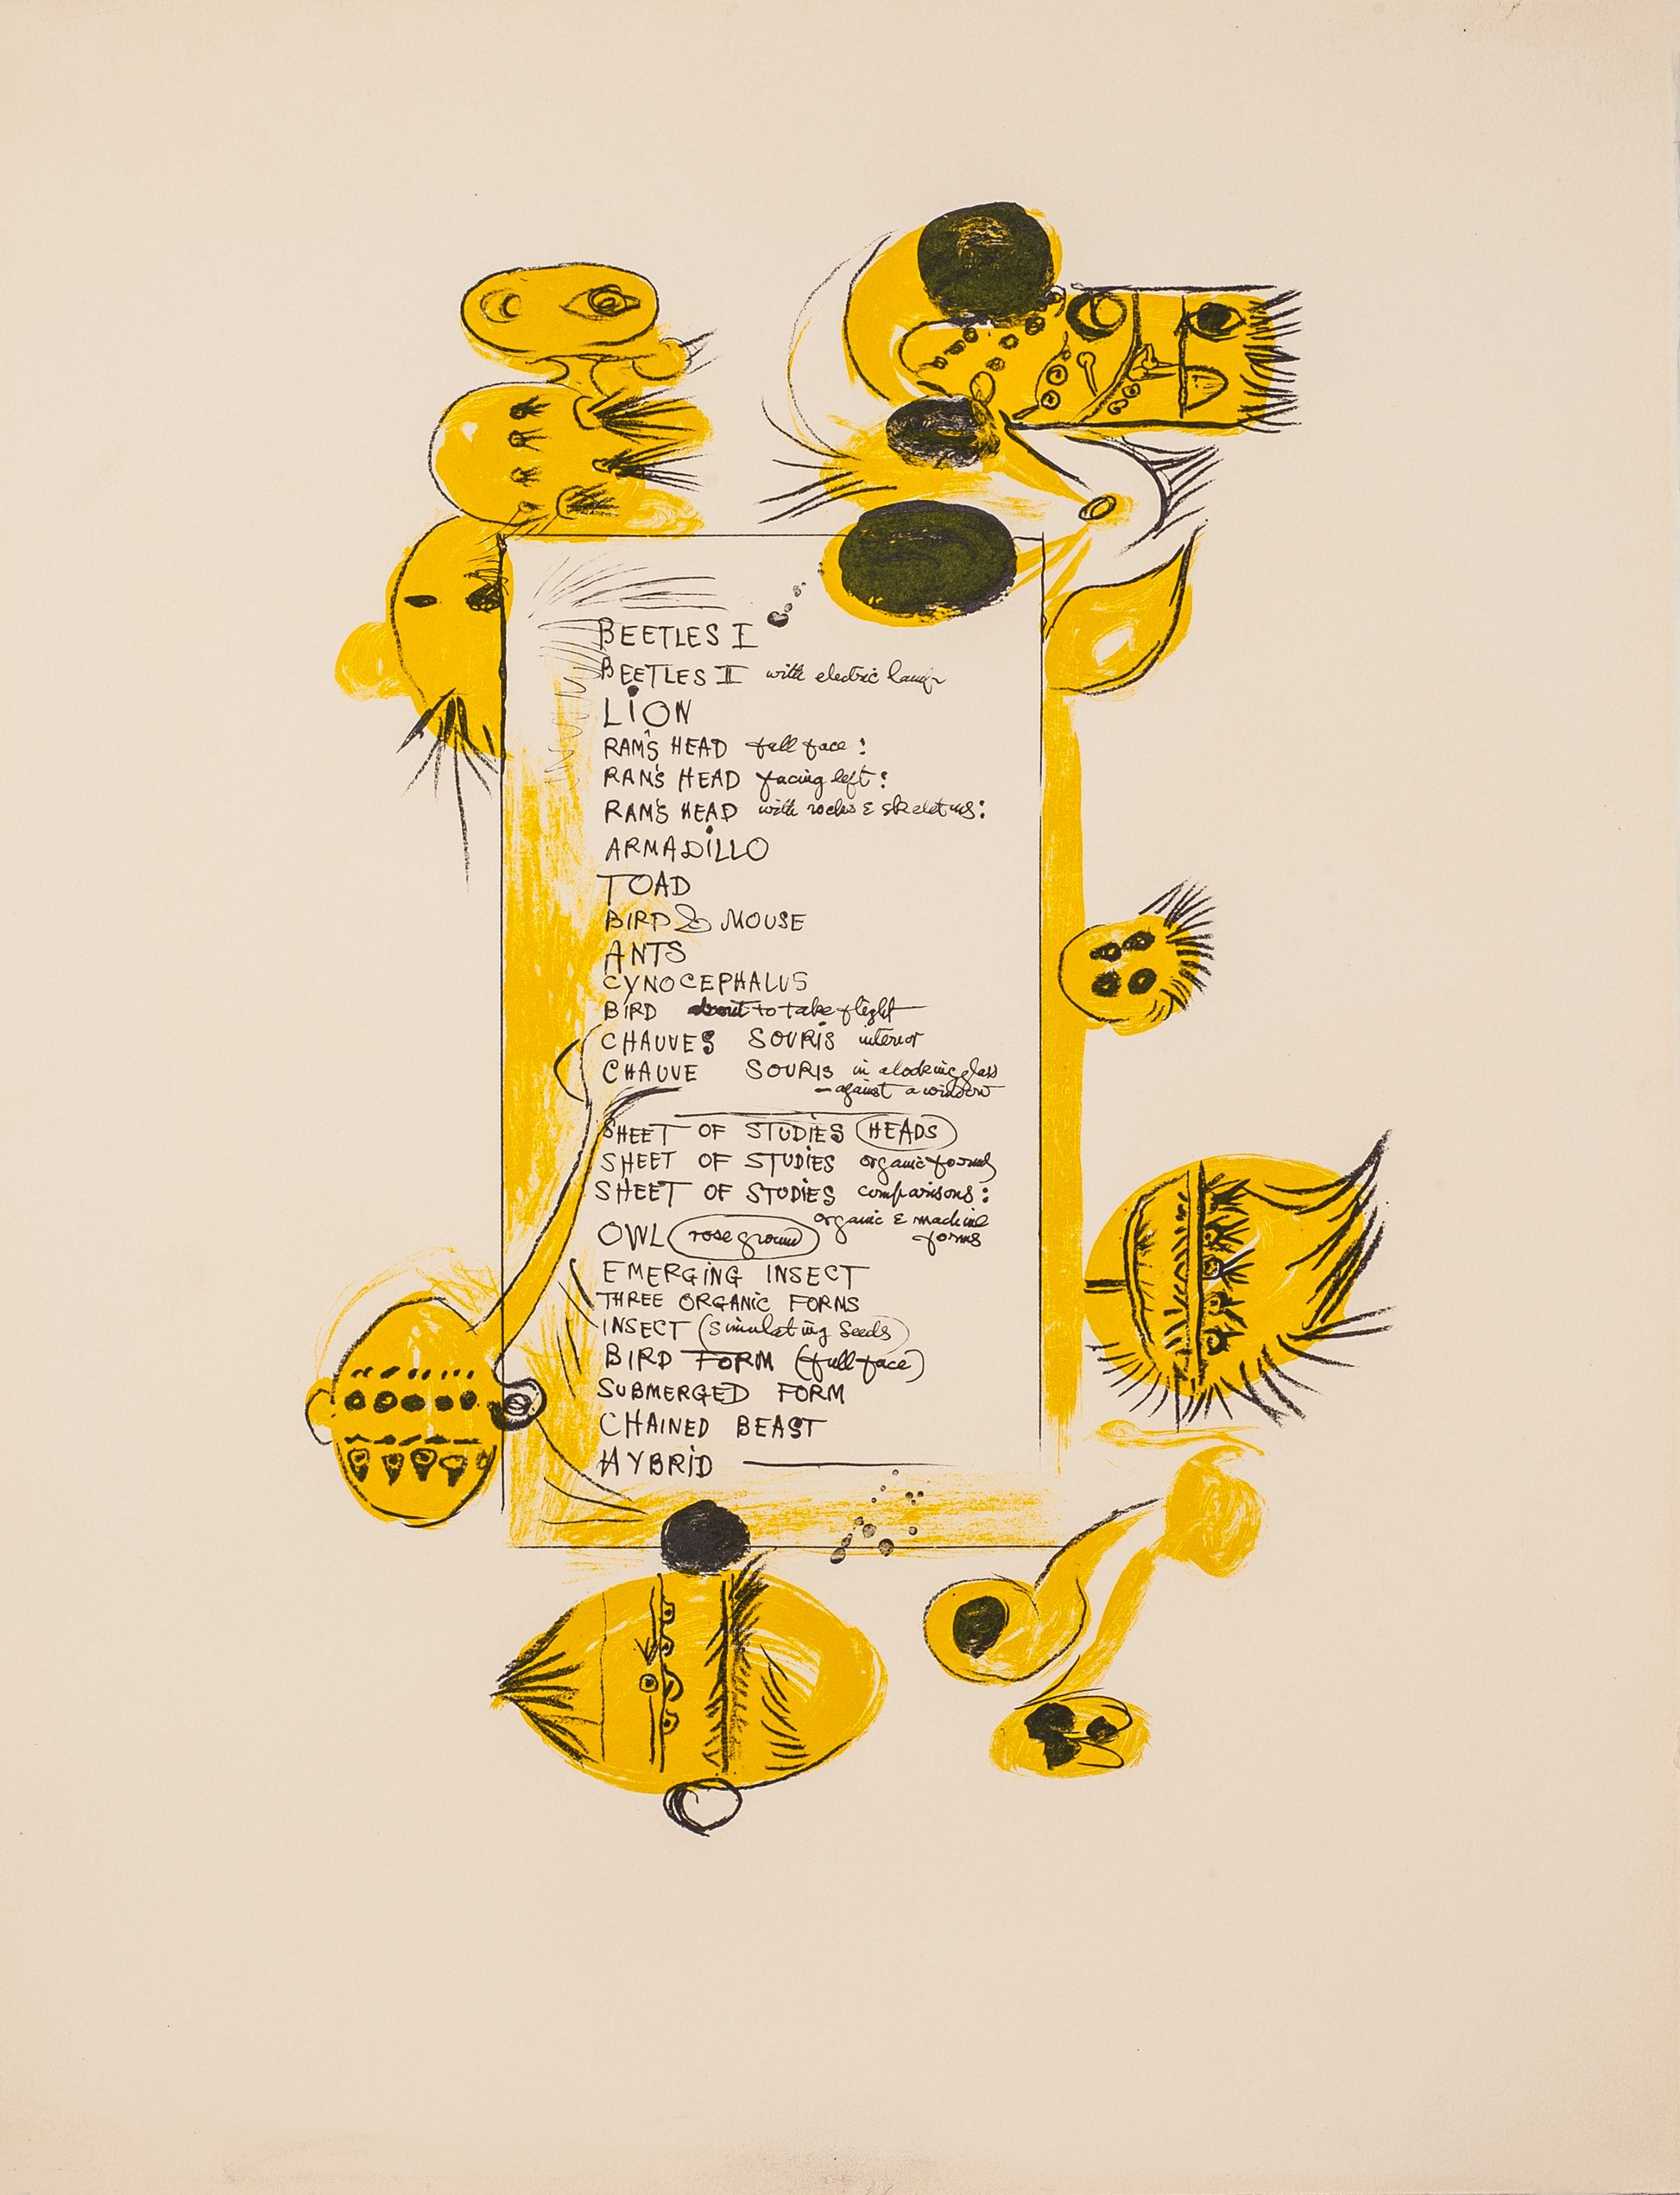 BEETLES I
BEETLES II with electric lamp
LION
RAM'S HEAD full face :
RAM'S HEAD facing left :
RAM'S HEAD with rocks & skeletons :
ARMADILLO
TOAD
BIRD & MOUSE
ANTS
CYNOCEPHALUS
BIRD about to take flight
CHAUVES SOURIS interior
CHAUVE SOURIS in a looking glass
– against a window
SHEET OF STUDIES (HEADS)
SHEET OF STUDIES organic forms
SHEET OF STUDIES comparisons :
organic & machine
forms
OWL (rose ground)
EMERGING INSECT
THREE ORGANIC FORMS
INSECT (simulating seeds)
BIRD FORM (full face)
SUBMERGED FORM
CHAINED BEAST
HYBRID